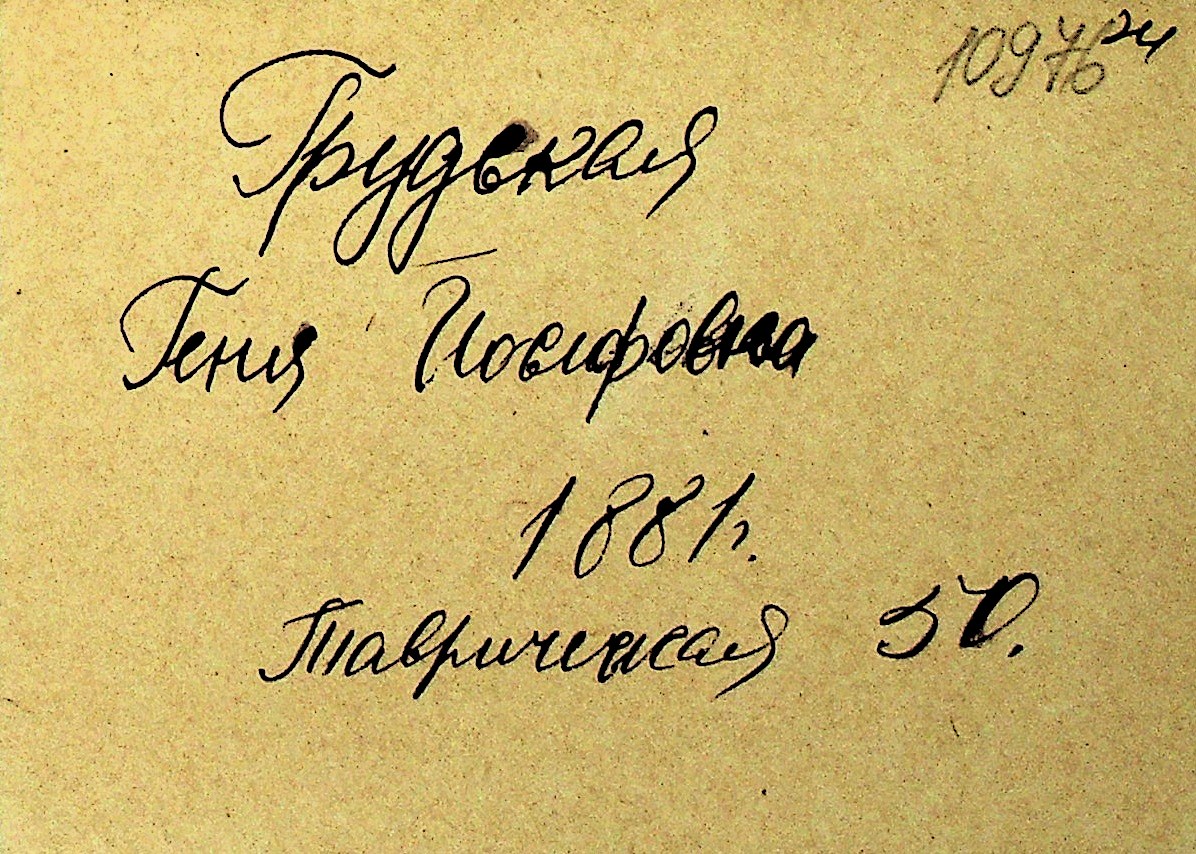 10976 24
Грудская
Геня Йосифовна
1881г.
Таврическая 50.